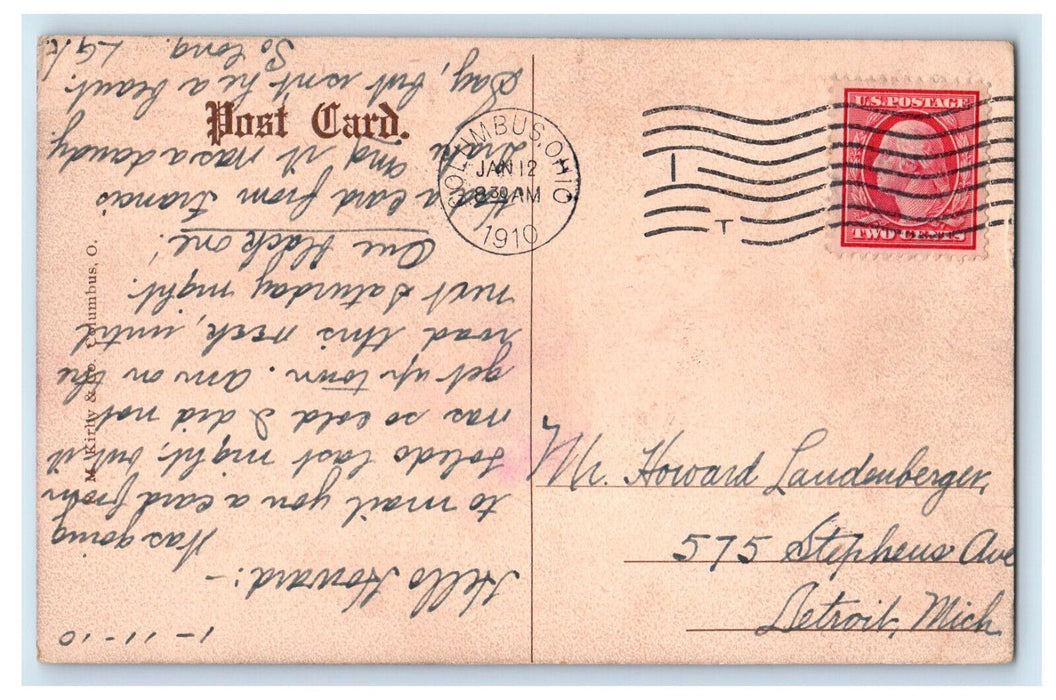 Post Card.
M. Kirby & Co. Columbus, O.
COLUMBUS, OHIO
JAN 12
8 30 AM
1910
T
U.S. POSTAGE
TWO CENTS
Mr. Howard Laudenberger,
575 Stephens Ave
Detroit, Mich
1-11-10
Hello Howard:-
Was going
to mail you a card from
Toledo last night, but it
was so cold I did not
get up town. Am on the
road this week, until
next Saturday night.
One black one!
a card from Francis
and it was a dandy.
Say, but isn't he a beaut.
So long.